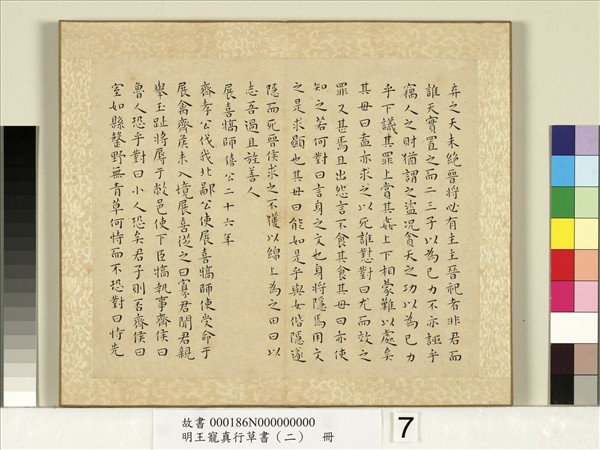 弃之天未絶晉將必有主主晉祀者非君而
誰天實置之而二三子以為己力不亦誣乎
竊人之財猶謂之盜況貪天之功以為己力
乎下議其罪上賞其姦上下相蒙難以處矣
其母曰盍亦求之以死誰懟對曰尤而效之
罪又甚焉且出怨言不食其食其母曰亦使
知之若何對曰言身之文也身將隱焉用文
之是求顯也其母曰能如是乎與女偕隱遂
隱而死晉侯求之不獲以綿上為之田曰以
志吾過且旌善人
展喜犒師僖公二十六年
齊孝公伐我北鄙公使展喜犒師使受命于
展禽齊侯未入境展喜從之曰寡君聞君親
舉玉趾將辱于敝邑使下臣犒執事齊侯曰
魯人恐乎對曰小人恐矣君子則否齊侯曰
室如縣罄野無青草何恃而不恐對曰恃先
故書 000186N000000000
明王寵真行草書（二） 冊
7